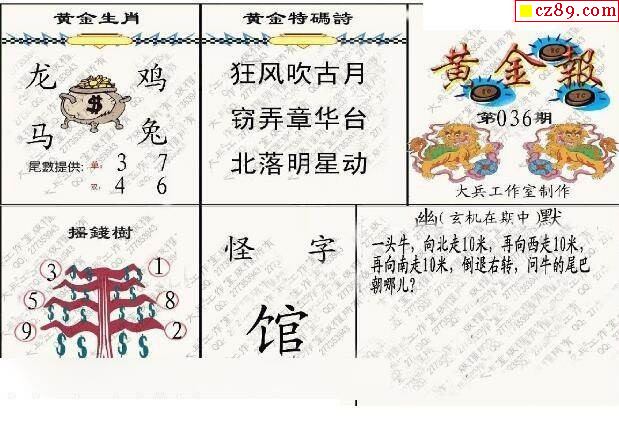 cz89.com
黄金生肖
龙 鸡
马 兔
尾數提供: 单: 3 7
双: 4 6
黄金特碼詩
狂风吹古月
窃弄章华台
北落明星动
黄金報
第036期
大兵工作室制作
摇錢樹
3 1
5 8
9 2
怪 字
馆
幽(玄机在期中)默
一头牛，向北走10米，再向西走10米，
再向南走10米，倒退右转，问牛的尾巴
朝哪儿？